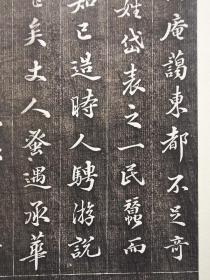 庵藹東都不足奇
姓岱表之一民蠶而
知已造時人騁游説
矣丈人蚤遇承華